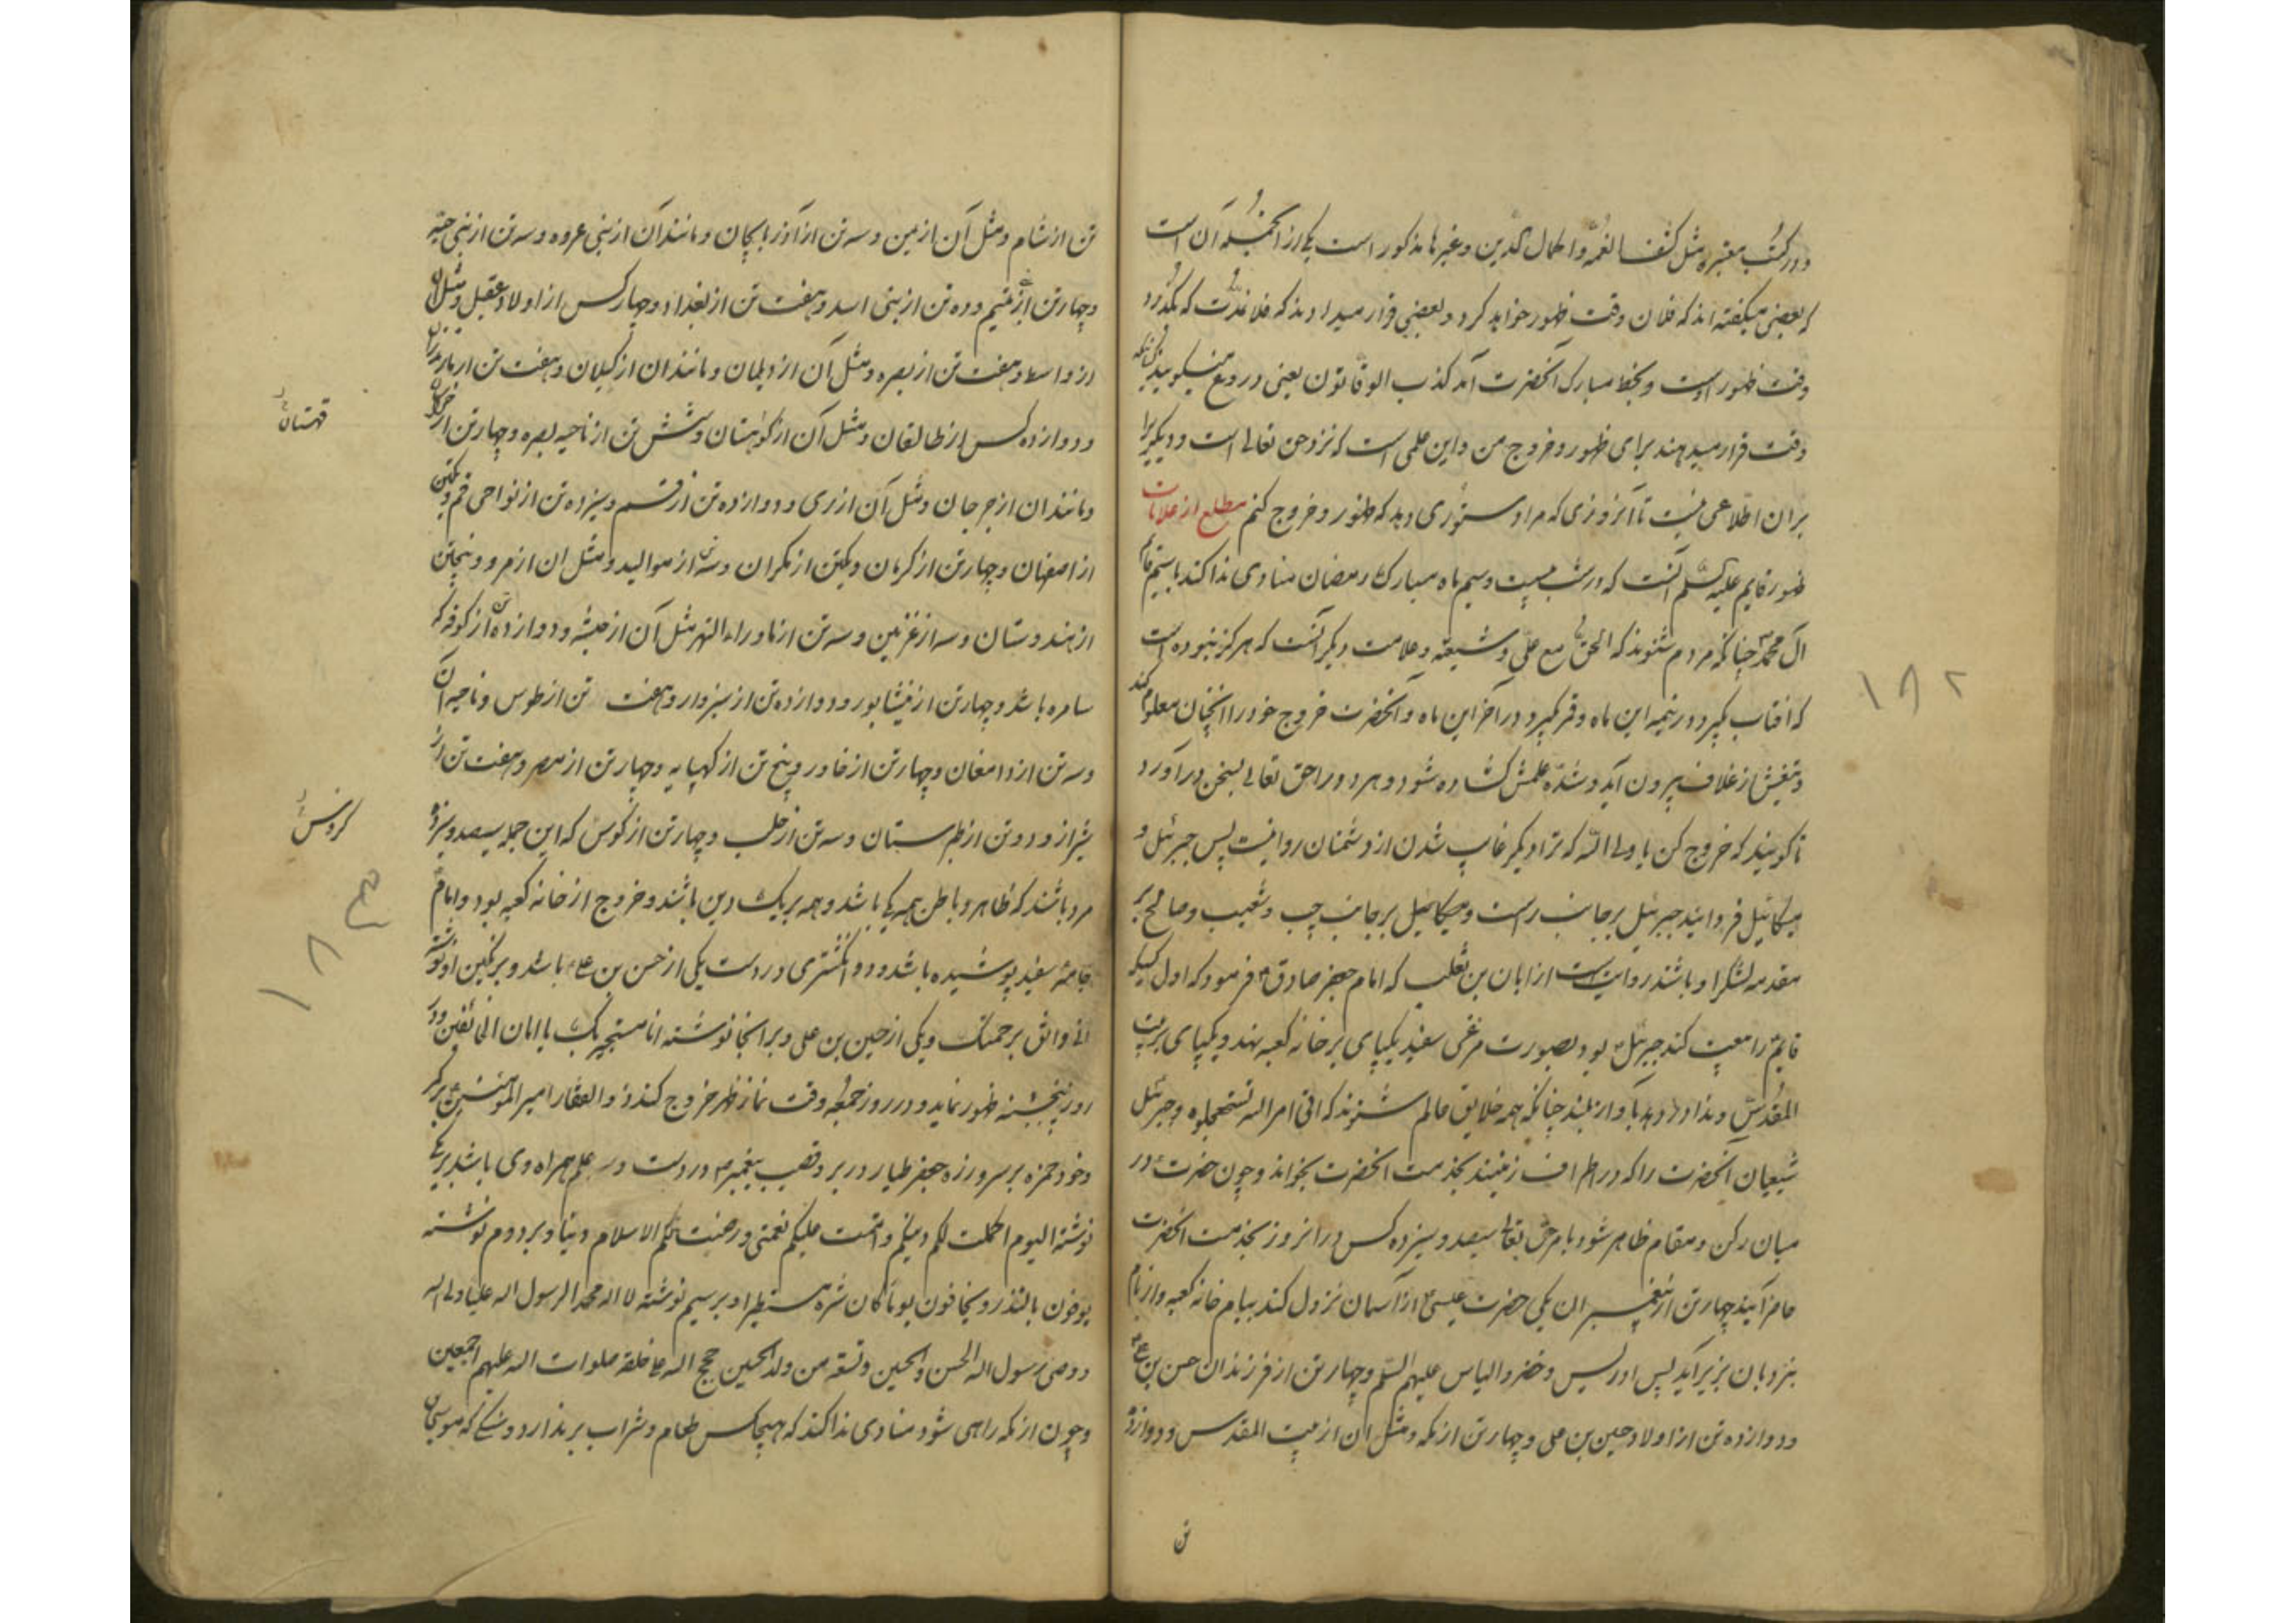 و در کتب معتبره مثل کشف الغمه و اکمال الدین و غیرها مذکور است یکی از انجمله آن است
که بعضی میگفته اند که فلان وقت ظهور خواهد کرد و بعضی قرار میدادند که فلا مدت که بگذرد
وقت ظهور اوست و بخط مبارک آنحضرت آمد کذب الوقاتون یعنی دروغ میگویند آنانکه
وقت قرار میدهند برای ظهور و خروج من و این علمی است که نزد حق تعالی است و دیگریرا
بران اطلاعی نیست تا آنروزی که مرا دستوری دهد که ظهور و خروج کنم مطلع از علامات
ظهور قایم علیه السلم آنست که در شب بیست و سیم ماه مبارک رمضان منادی ندا کند باسم قائم
آل محمد چنانکه مردم شنوند که الحق مع علی و شیعته و علامت دیگر آنست که هرگز نبوده است
که افتاب بگیرد در نیمه این ماه و قمر بگیرد در آخر این ماه و آنحضرت خروج خود را انچنان معلوم کند
و تیغش از غلاف بیرون آید و شده علمش گشاده شود و هر دو را حق تعالی بسخن درآورد
تا گویند که خروج کن یا ولی الله که ترا دیگر غایب شدن از دشمنان روا نیست پس جبرئیل و
میکائیل فرود آیند جبرئیل بر جانب راست و میکائیل بر جانب چپ و شعیب و صالح بر
مقدمه لشکر او باشند روایت است از ابان بن تغلب که امام جعفر صادق ع فرمود که اول کسیکه
قایم را بیعت کند جبرئیل بود بصورت مرغی سفید یکپای بر خانه کعبه نهد و یکپای بر بیت
المقدس و ندا در دهد بآواز بلند چنانکه همه خلایق عالم شنوند که اتی امر الله فلا تستعجلوه و جبرئیل
شیعیان آنحضرت را که در اطراف زمینند بخدمت آنحضرت بخواند و چون حضرت در
میان رکن و مقام ظاهر شود بامر حق تعالی سیصد و سیزده کس در انروز بخدمت آنحضرت
حاضر آیند چهار تن از پیغمبران یکی حضرت عیسی از آسمان نزول کند ببام خانه کعبه و از بام
بنردبان بزیر آید پس ادریس و خضر و الیاس علیهم السلم و چهار تن از فرزندان حسن بن علی
و دوازده تن از اولاد حسین بن علی و چهار تن از مکه و مثل آن از بیت المقدس و دوازده
تن
۱۸۲
تن از شام و مثل آن از یمن و سه تن از آذربایجان و مانند آن از بنی عروه و سه تن از بنی حیه
و چهار تن از تمیم و ده تن از بنی اسد و هفت تن از بغداد و چهار کس از اولاد عقیل و مثل آن
از واسط و هفت تن از بصره و مثل آن از دیلمان و مانند ان از گیلان و هفت تن از مازندران
و دوازده کس از طالقان و مثل آن از کوهستان و شش تن از ناحیه بصره و چهار تن از
و مانند ان از جرجان و مثل آن از ری و دوازده تن از قم و سیزده تن از نواحی قم و یکتن
از اصفهان و چهار تن از کرمان و یکتن از مکران و سه تن از موالید و مثل ان از مرو و پنجتن
از هندوستان و سه از غزنین و سه تن از ماوراء النهر مثل آن از حبشه و دوازده تن از کوفه که
سامره باشد و چهار تن از نیشابور و دوازده تن از سبزوار و هفت تن از طوس و ناحیه آن
و سه تن از دامغان و چهار تن از خاور و پنج تن از کهپایه و چهار تن از مصر و هفت تن از
شیراز و دو تن از طبرستان و سه تن از حلب و چهار تن از کوس که این جمله سیصد و سیزده
مرد باشند که ظاهر و باطن همه یکی باشد و همه بر یک دین باشند و خروج از خانه کعبه بود و امام
جامه سفید پوشیده باشد و دو انگشتری در دست یکی از حسن بن علی باشد و بر نگین او نوشته
انی واثق برحمتک و یکی از حسین بن علی و بر انجا نوشته انا مستجیر بک یا امان الخائفین و در
روز پنجشنبه ظهور نماید و در روز جمعه وقت نماز ظهر خروج کند ذوالفقار امیر المؤمنین بر کمر
و خود حمزه بر سر و زره جعفر طیار در بر و قضیب پیغمبر در دست و سه علم همراه وی باشد بر یکی
نوشته الیوم اکملت لکم دینکم و اتممت علیکم نعمتی و رضیت لکم الاسلام دینا و بر دوم نوشته
یوفون بالنذر و یخافون یوما کان شره مستطیرا و بر سیم نوشته لا اله محمد الرسول اله علیا ولی اله
و وصی رسول اله الحسن و الحسین و تسعه من ولد الحسین حجج اله علی خلقه صلوات اله علیهم اجمعین
و چون از مکه راهی شود منادی ندا کند که هیچکس طعام و شراب برندارد و سنگی که موسی
قهستان
۱۸۳